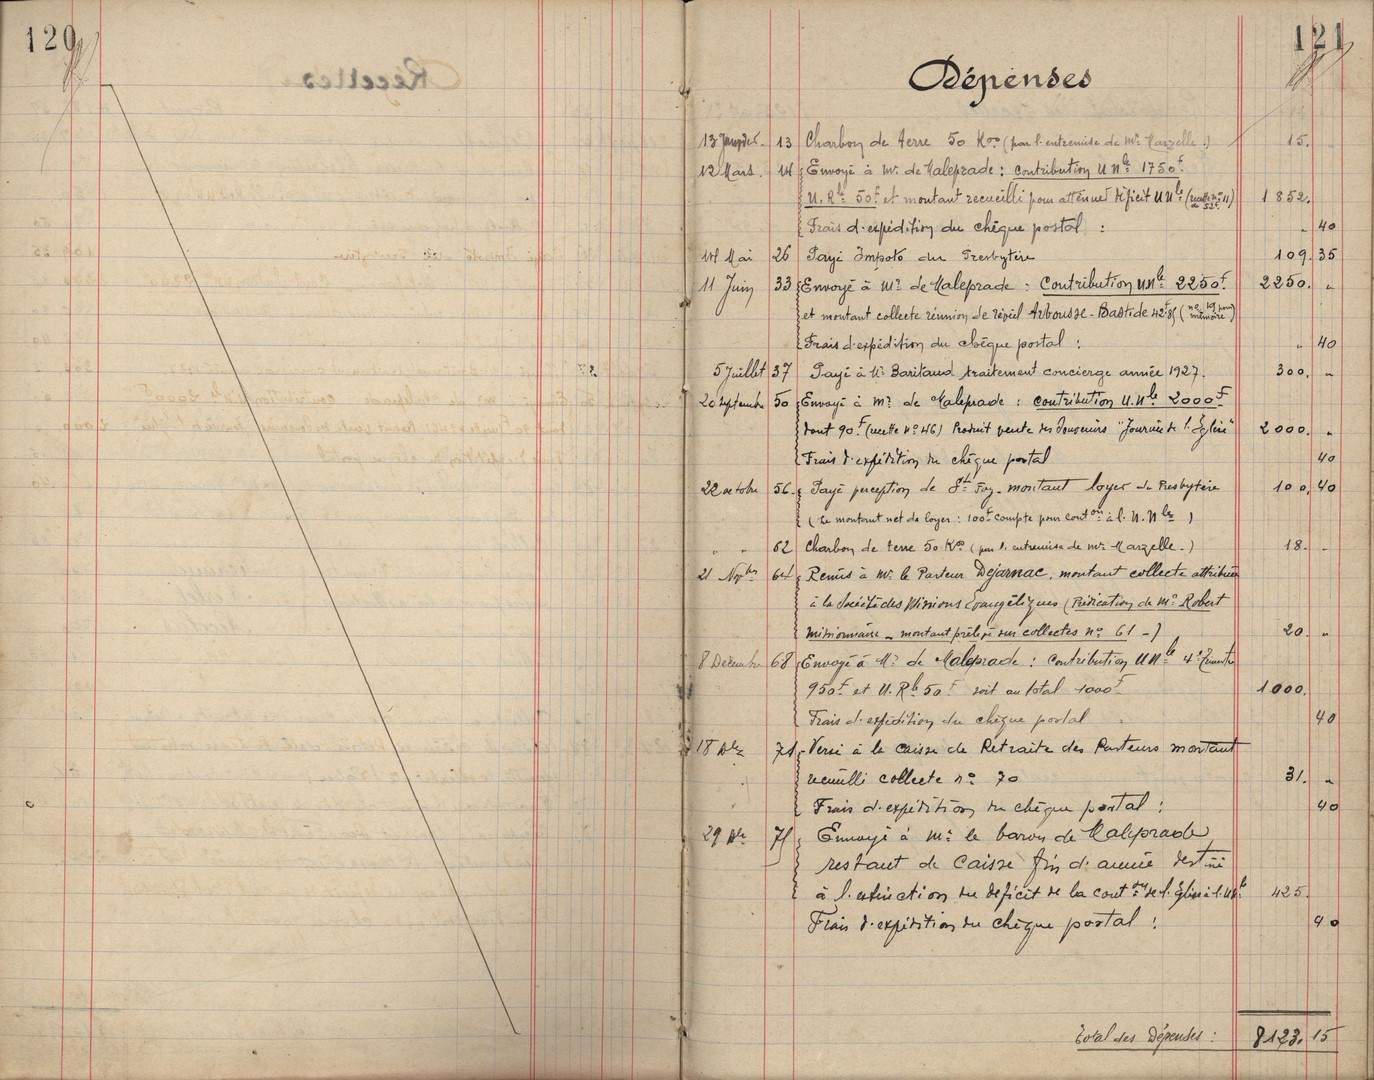 120
121
Dépenses
13 Janvier 13 Charbon de terre 50 Kos (par l'entremise de Mr Marzelle.) 15.
12 Mars. 14 Envoyé à Mr. de Maleprade : contribution U Nle 1750f.
U. Rle 50f et montant recueilli pour atténuer déficit U Nle (recette no 11) 1852.
Frais d'expédition du chèque postal : „ 40
14 Mai 26 Payé Impôts du Presbytère 109. 35
11 Juin 33 Envoyé à Mr de Maleprade : Contribution U Nle 2250f. 2250. „
et montant collecte réunion de réveil Arbousse-Bastide (no 19 pour mémoire)
Frais d'expédition du chèque postal : „ 40
5 Juillet 37 Payé à Mr Baritaud traitement concierge année 1927. 300. „
20 septembre 50 Envoyé à Mr de Maleprade : contribution U. Nle 2000f
dont 90f (recette no 46) Produit vente des Souvenirs "Journée de l'Église" 2000. „
Frais d'expédition du chèque postal 40
22 octobre 56. Payé perception de Ste Foy. montant loyer du Presbytère 100. 40
(Le montant net du loyer : 100f compte pour conton à l. U. Nle )
„ „ 62 Charbon de terre 50 Kos (par l'entremise de Mr Marzelle.) 18. „
21 Novbre 64 Remis à Mr le Pasteur Dejarnac, montant collecte attribuée
à la Société des Missions Evangéliques (Prédication de Mr Robert
missionnaire _ montant prélevé sur collectes no 61 _) 20. „
8 Décembre 68 Envoyé à Mr de Maleprade : contribution U Nle 4e Trimestre
950f et U. Rle 50f soit au total 1000f 1000.
Frais d'expédition du chèque postal 40
18 Dbre 71 Versé à la caisse de Retraite des Pasteurs montant
recueilli collecte no 70 31. „
Frais d'expédition du chèque postal : 40
29 Dbre 75 Envoyé à Mr le baron de Maleprade
restant de caisse fin d'année destiné
à l'extinction du déficit de la conton de l'Eglise à l. U Nle 425.
Frais d'expédition du chèque postal : 40
Total des Dépenses : 8123. 15